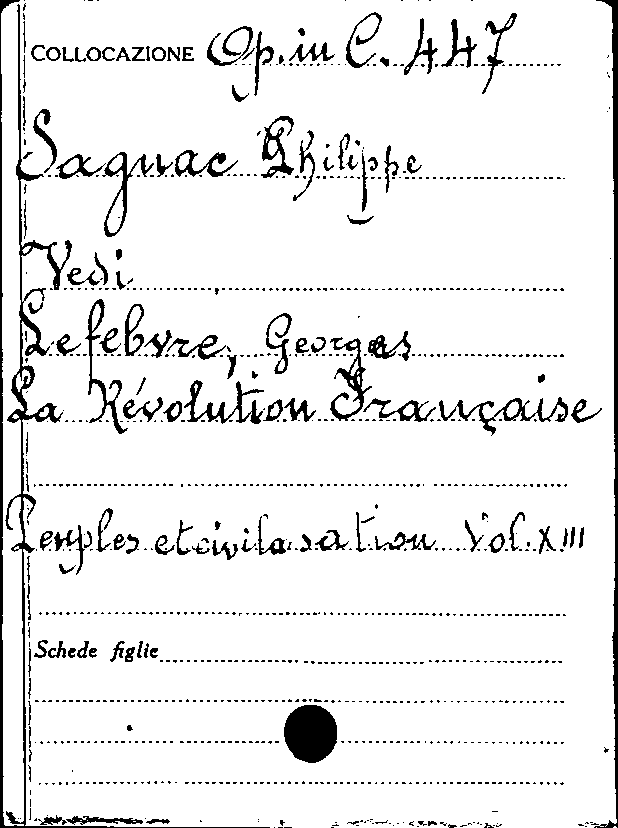 COLLOCAZIONE Op. in C. 447
Sagnac Philippe
Vedi
Lefebvre, Georges
La Révolution Française
Peuples et civilasation Vol. XIII
Schede figlie